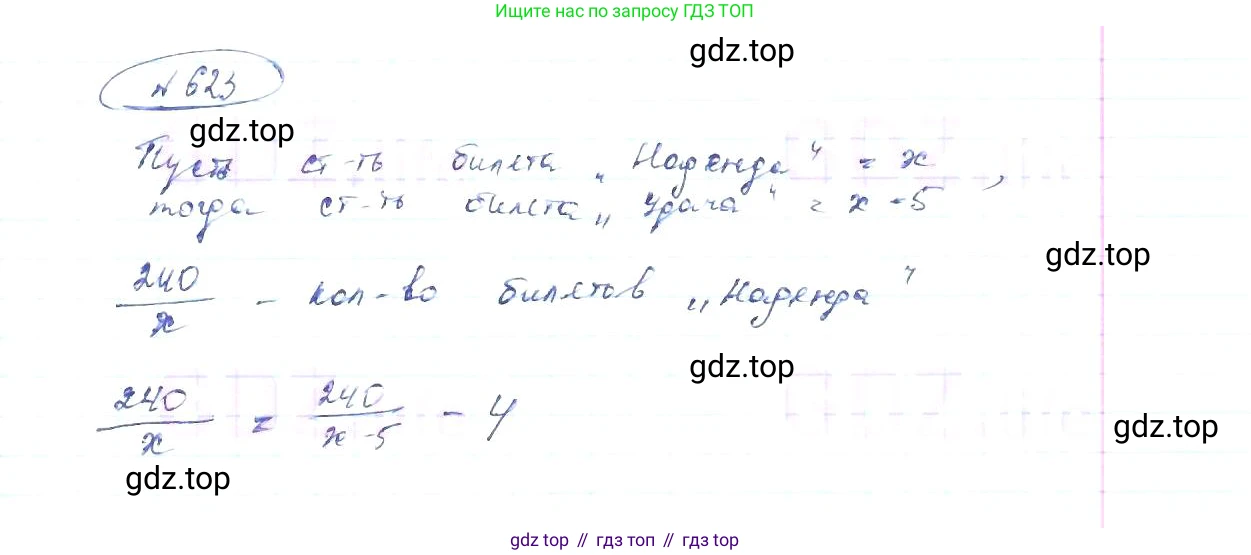 Ищите нас по запросу ГДЗ ТОП
gdz.top
№ 623
gdz.top
Пусть ст-ть билета „Надежда" = x
тогда ст-ть билета „Удача" = x - 5,
gdz.top
240/x - кол-во билетов „Надежда"
gdz.top
240/x = 240/(x-5) - 4
gdz.top
gdz.top
gdz.top // гдз топ // гдз top